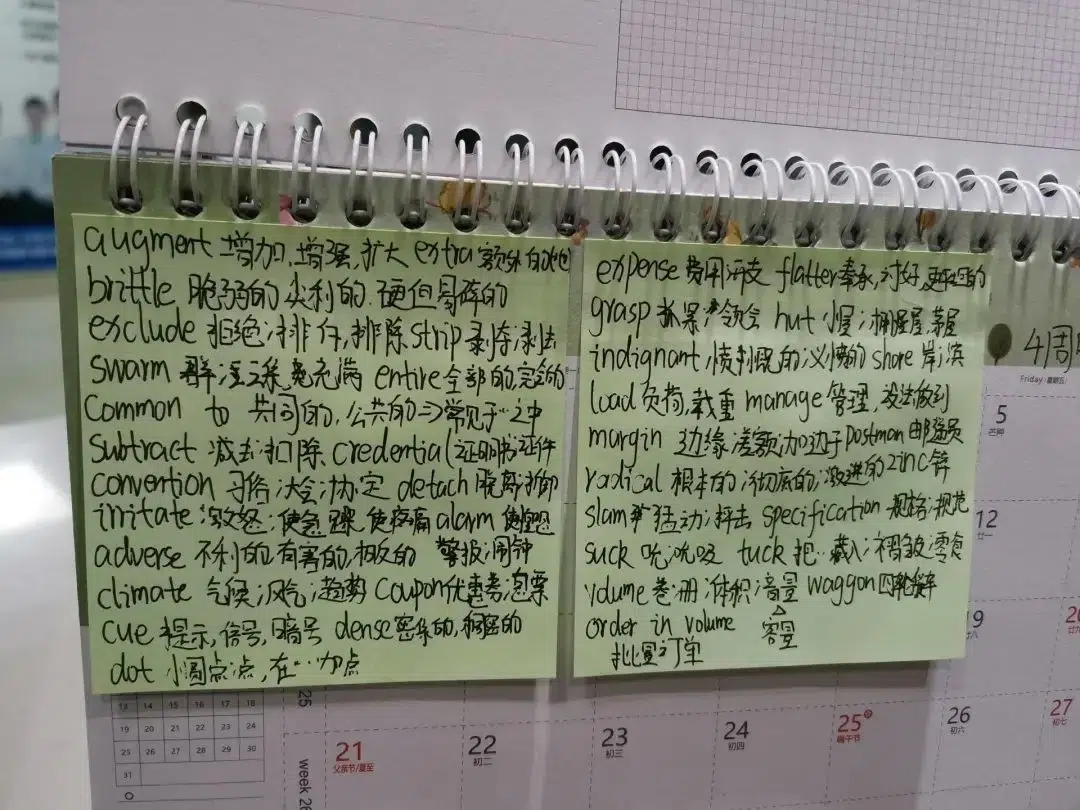 augment 增加,增强,扩大 extra 额外的
brittle 脆弱的 尖利的 硬但易碎的
exclude 拒绝;排斥,排除 strip 剥夺;剥去
swarm 群;云集;充满 entire 全部的,完全的
common to 共同的,公共的 常见于…之中
subtract 减去;扣除 credential 证明书;证件
convention 习俗;大会;协定 detach 脱离;拆卸
irritate 激怒;使急躁,使疼痛 alarm
adverse 不利的,有害的,相反的 警报;闹钟
climate 气候;风气;趋势 coupon 优惠券;息票
cue 提示,信号,暗号 dense 密集的,稠密的
dot 小圆点;点,在…加点
expense 费用;开支 flatter 奉承,讨好,更平坦的
grasp 抓紧;领会 hut 小屋;棚屋,茅屋
indignant 愤慨的 义愤的 shore 岸;滨
load 负荷,载重 manage 管理,设法做到
margin 边缘;差额;加边于 postman 邮递员
radical 根本的;彻底的;激进的 zinc 锌
slam 猛动;抨击 specification 规格;规范
suck 吮;吮吸 tuck 把…藏入;褶皱;零食
volume 卷;册;体积;音量 waggon 四轮
order in volume 容量
批量订单
4周
Friday / 星期五
5
芒种
12
廿一
13 14 15 16 17 18
19 20 21 22 23 24
25 26 27 28 29 30
31
25
week 26
21
父亲节/夏至
22
初二
23
初三
24
初四
25
端午节
26
初六
27
初七